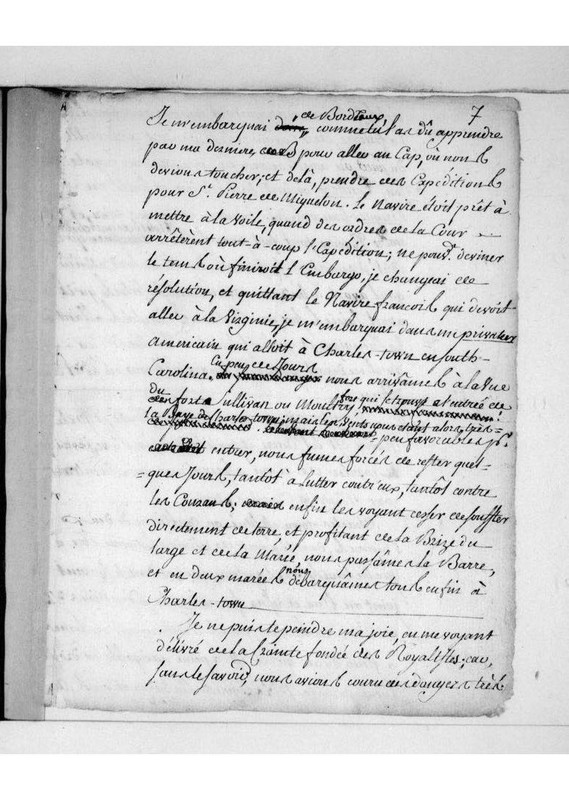 7
Je m'embarquai de Bordeaux, comme tu l'as dû apprendre
par ma dernière, pour aller au Cap, où nous
devions toucher; et delà, prendre des Expéditions
pour St. Pierre de Miquelon. Le Navire étoit prêt à
mettre à la voile, quand des ordres de la Cour
arrêtèrent tout-à-coup l'Expédition; ne pouvt. deviner
le tems où finiroit l'Embargo, je changeai de
résolution, et quittant le Navire françois qui devoit
aller à la Virginie, je m'embarquai dans un privateer
américain qui alloit à Charles-town en South-
Carolina. En peu de Jours nous arrivâmes à la vue
du fort Sullivan ou Moultry, fort qui se trouve à l'entrée de
la Baye de Charles-town; mais les vents nous étant alors très-
peu favorables pr.
entrer, nous fumes forcés de rester quel-
=ques Jours, tantôt à lutter contr'eux, tantôt contre
les Courans: enfin les voyant cesser de souffler
directement de terre, et profitant de la Brize du
large et de la Marée, nous passâmes la Barre,
et en deux marées nous débarquâmes tous enfin à
Charles-town
Je ne puis te peindre ma joie, en me voyant
délivré de la crainte fondée des Royalistes; car,
sans le savoir, nous avions couru des dangers très